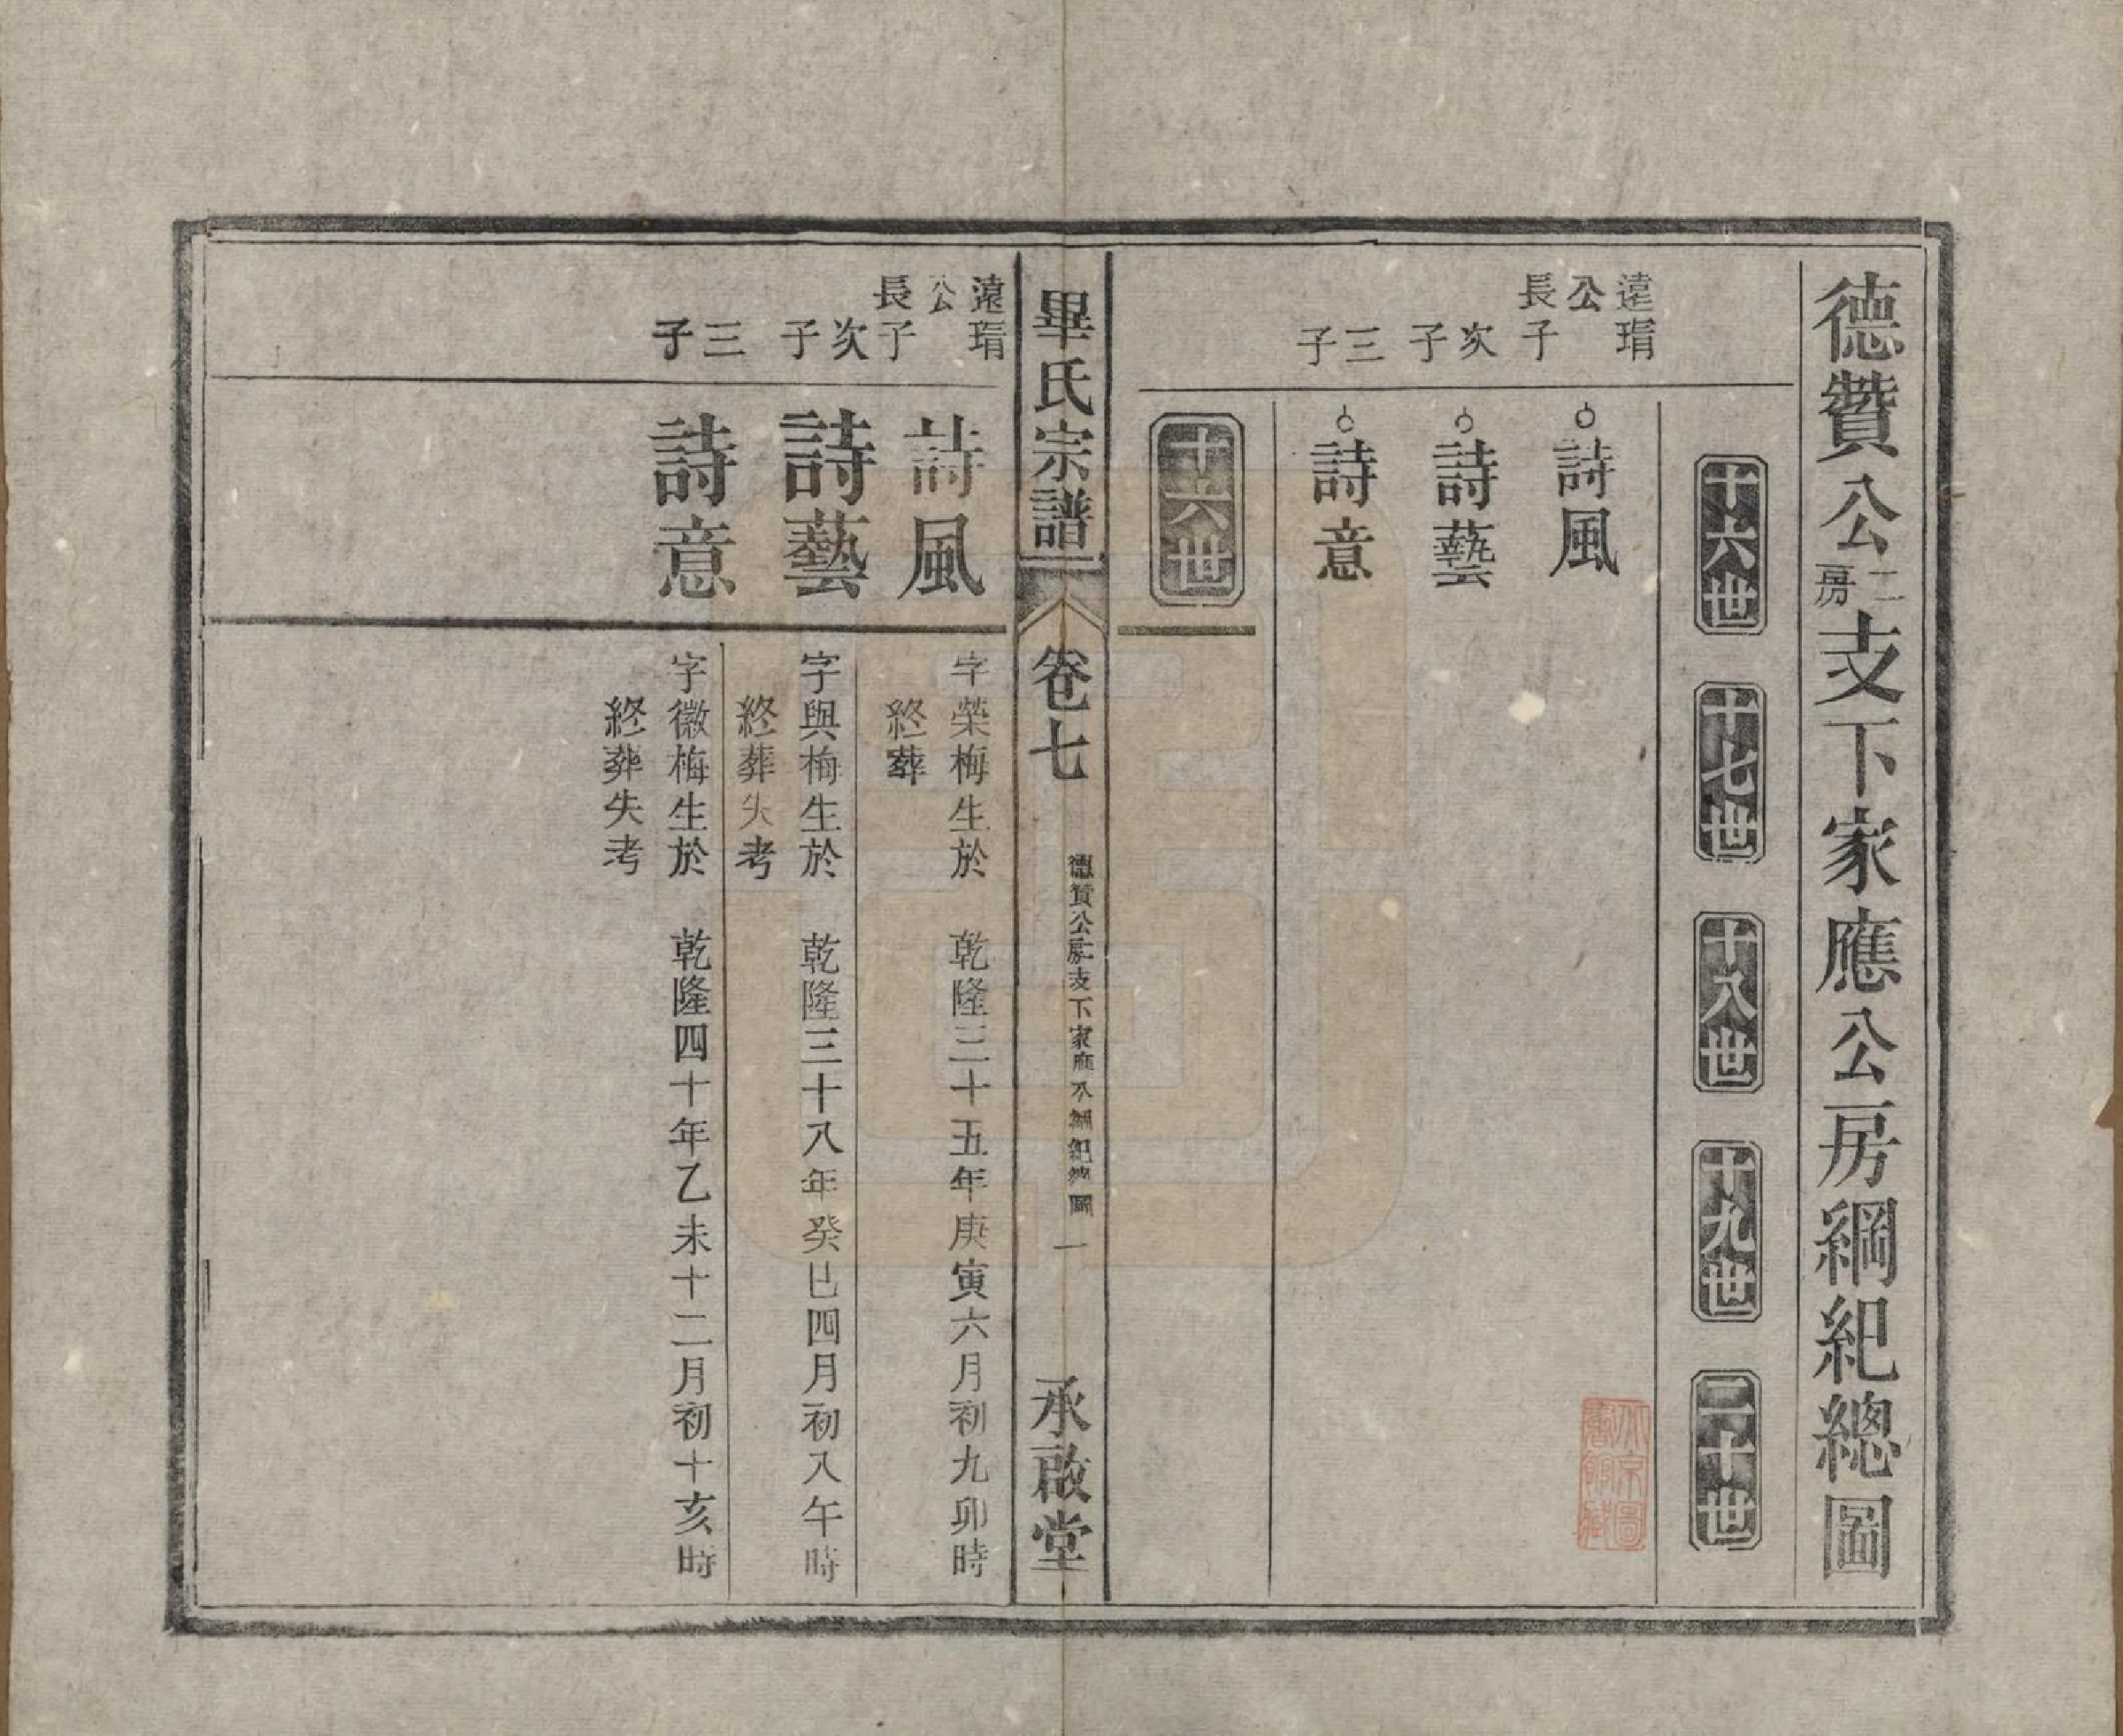 德贊公二房支下家應公房綱紀總圖
十六世 十七世 十八世 十九世 二十世
遠瑨公長子 詩風
次子 詩藝
三子 詩意
十六世
畢氏宗譜 卷七 德贊公二房支下家應公綱紀總圖 一 承啟堂
遠瑨公長子
詩風
字榮梅生於 乾隆三十五年庚寅六月初九卯時
終葬
次子
詩藝
字與梅生於 乾隆三十八年癸巳四月初八午時
終葬失考
三子
詩意
字徽梅生於 乾隆四十年乙未十二月初十亥時
終葬失考